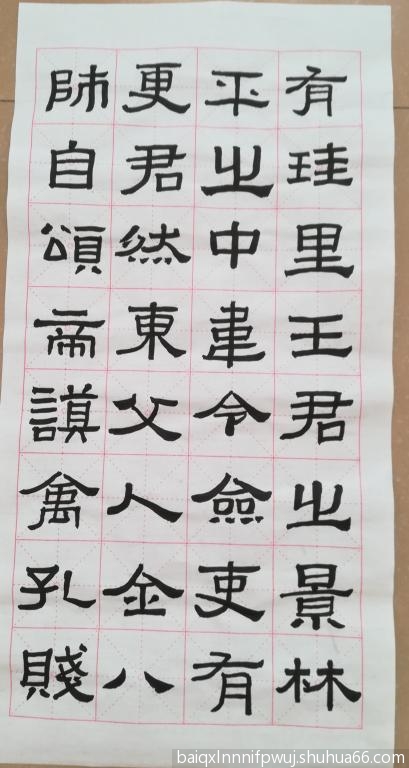 有珪里王君之景林
平之中建令僉吏有
更君然東父人金八
師自頌帝謨禽孔賤
baiqxlnnnifpwuj.shuhua66.com